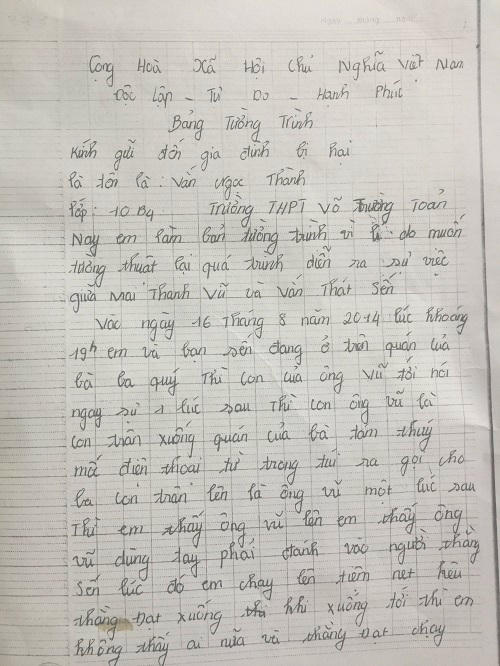 Cộng Hoà Xã Hội Chủ Nghĩa Việt Nam
Độc Lập - Tự Do - Hạnh Phúc
Bảng Tường Trình
Kính gửi đối gia đình bị hại
là tôi là : Văn Ngọc Thành
lớp : 10 B4 Trường THPT Võ Trường Toản
Nay em làm bản tường trình vì lí do muốn
tường thuật lại quá trình diễn ra sư việc
giữa Mai Thanh Vũ và Văn Thát Sến
Vào ngày 16 Tháng 8 năm 2014 lúc khoảng
19h em và bạn sến đang ở trên quán của
bà ba quý Thì con của ông Vũ tới nói
ngay sư 1 lúc sau Thì con ông vũ là
con trân xuống quán của bà tám thuý
mốc điện thoại từ trong túi ra gọi cho
ba con trân lên là ông vũ một lúc sau
Thì em thấy ông vũ lên em thấy ông
vũ dùng tay phải đánh vào người thằng
sến lúc đó em chạy lên tiệm net kêu
thằng Đạt xuống khi xuống tới thì em
không thấy ai nữa và thằng Đạt chạy